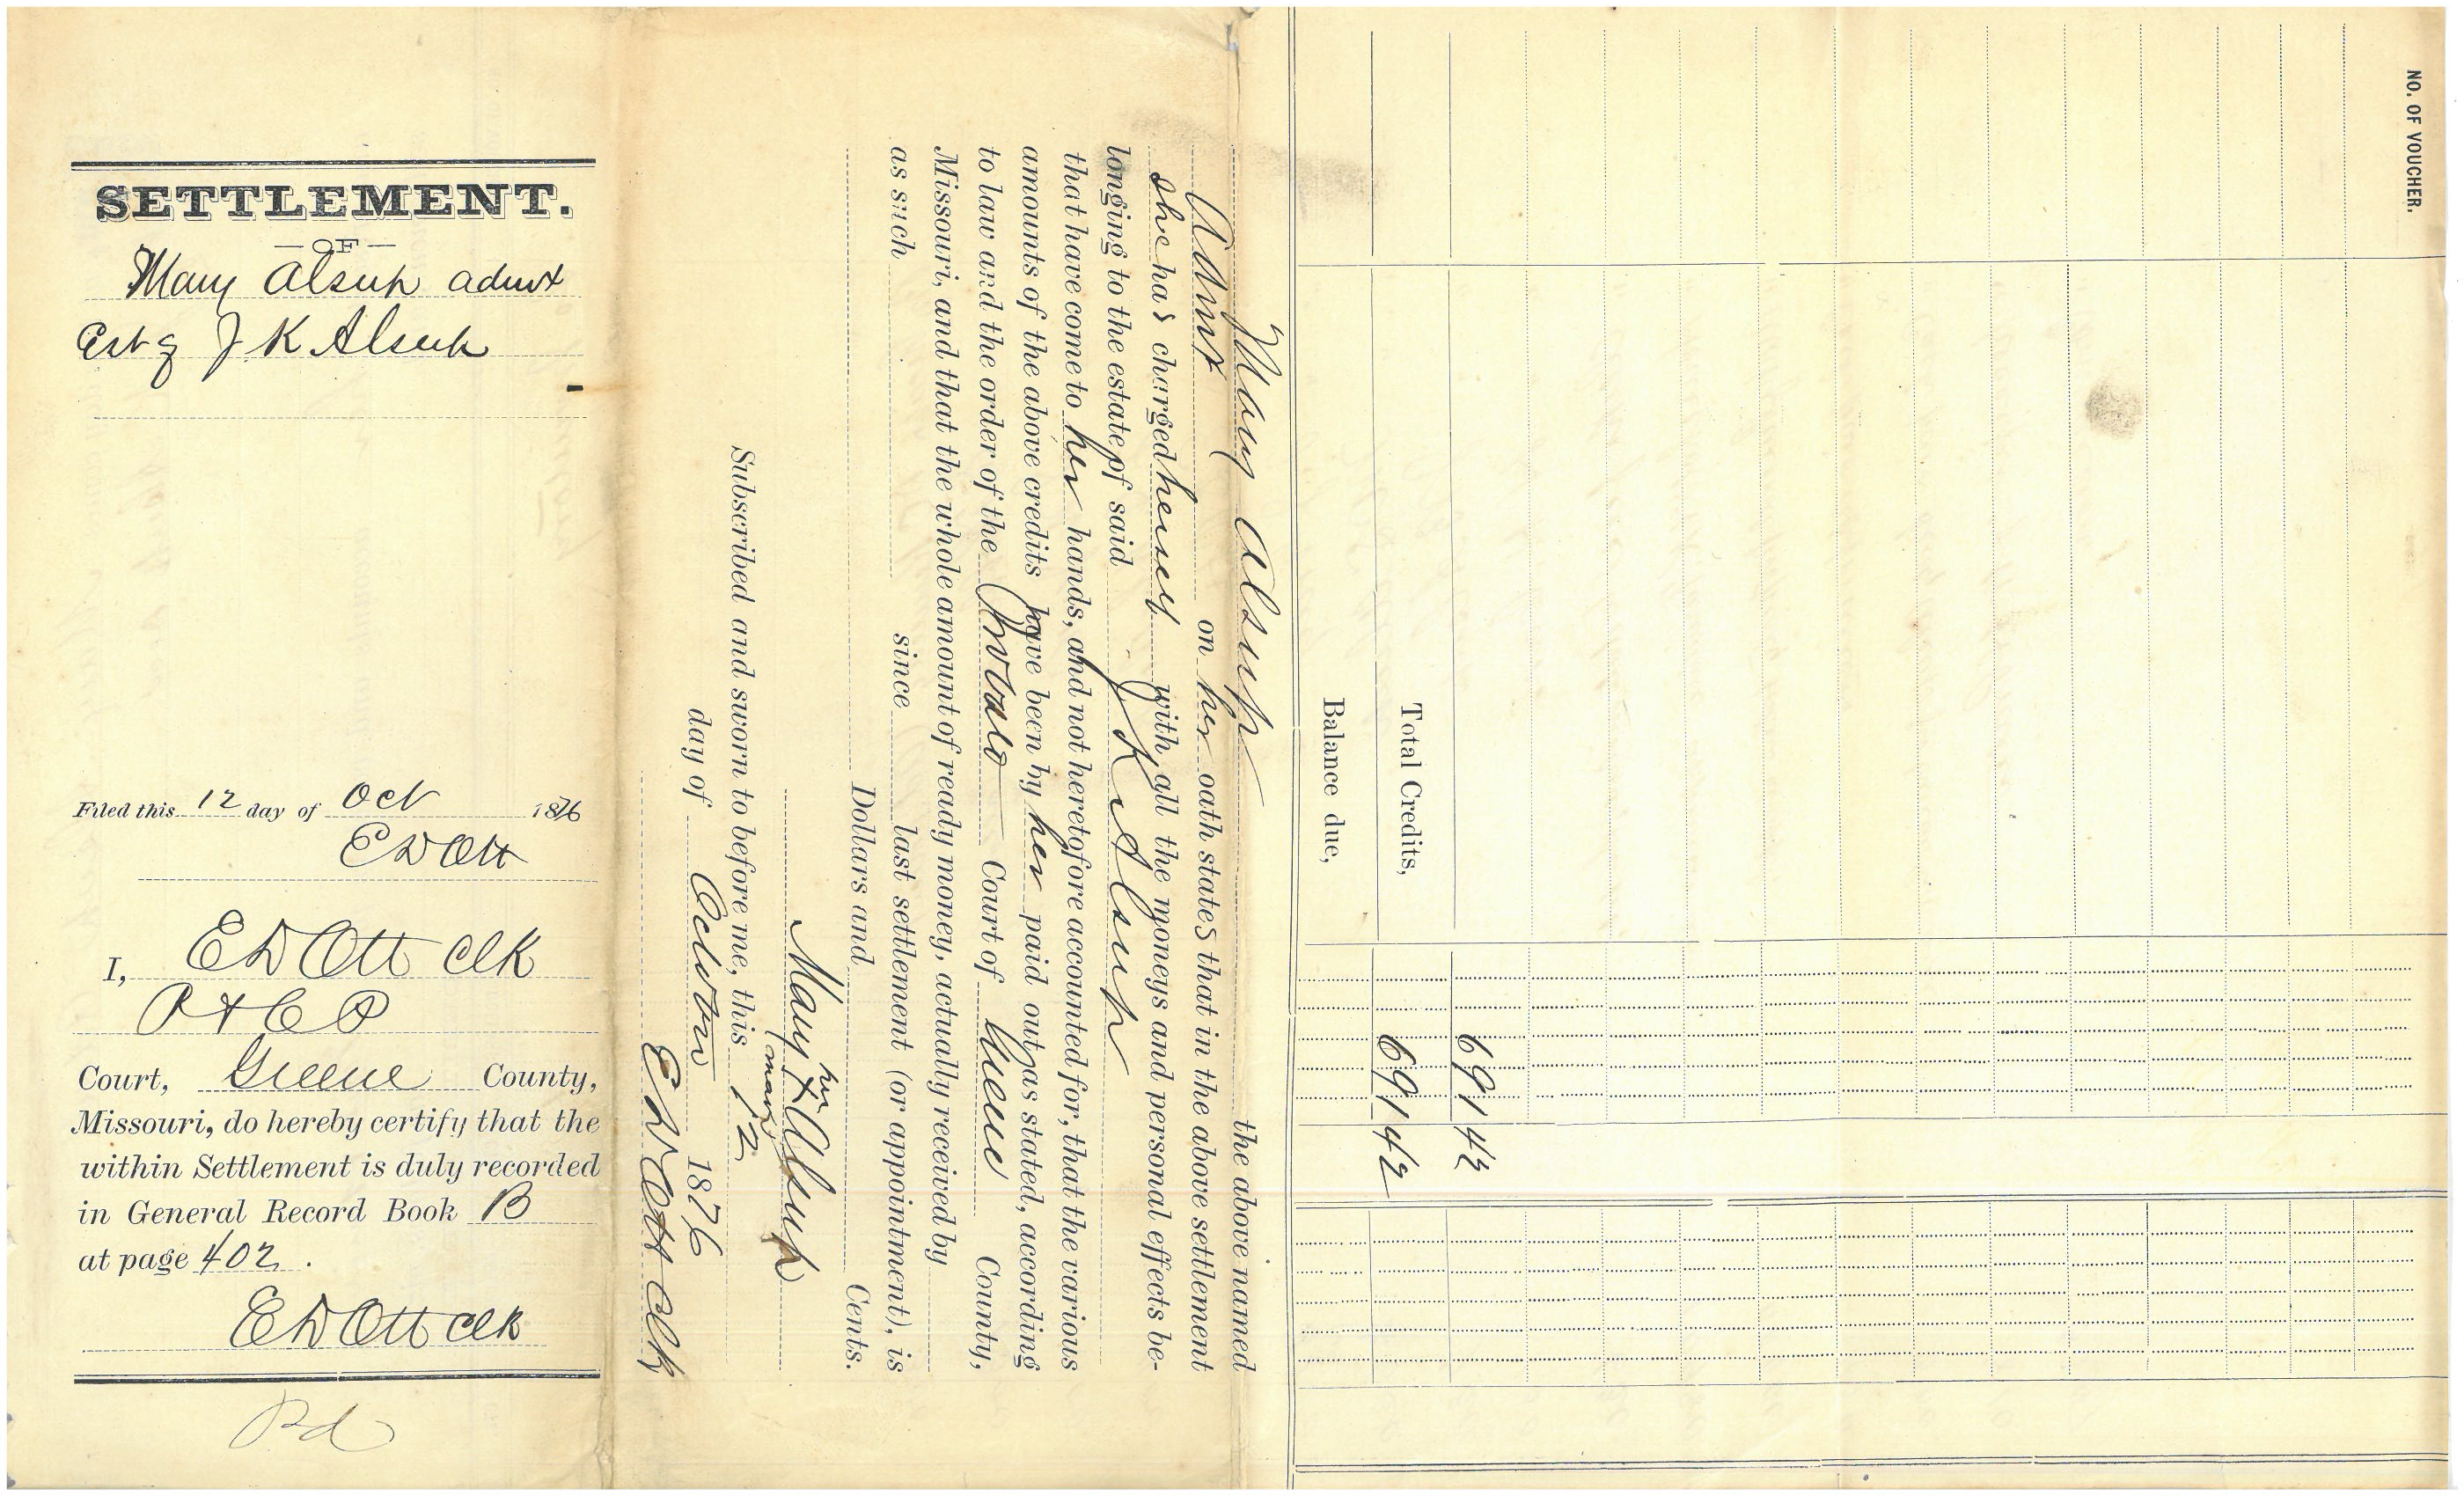 SETTLEMENT.
— OF —
Mary Alsup admx
Est of J K Alsup
Filed this 12 day of Oct 1876
E D Ott
I, E D Ott Clk
P & C P
Court, Greene County,
Missouri, do hereby certify that the
within Settlement is duly recorded
in General Record Book B
at page 402 .
E D Ott Clk
Pd
NO. OF VOUCHER.
691 42
Total Credits, 691 42
Balance due,
Mary Alsup the above named
Admx on her oath states that in the above settlement
she has charged herself with all the moneys and personal effects be-
longing to the estate of said J K Alsup
that have come to her hands, and not heretofore accounted for, that the various
amounts of the above credits have been by her paid out, as stated, according
to law and the order of the Probate Court of Greene County,
Missouri, and that the whole amount of ready money, actually received by
as such since last settlement (or appointment), is
Dollars and Cents.
her
Mary X Alsup
mark
Subscribed and sworn to before me, this 12
day of October 1876
E D Ott Clk